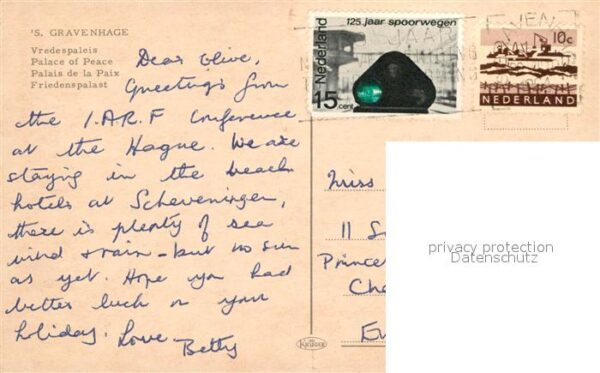 'S. GRAVENHAGE
Vredespaleis
Palace of Peace
Palais de la Paix
Friedenspalast
Dear Olive,
Greetings from
the I.A.R.F Conference
at the Hague. We are
staying in the beach
hotels at Scheveningen,
there is plenty of sea
wind & rain - but no sun
as yet. Hope you had
better luck on your
holiday. Love
Betty
125 jaar spoorwegen
Nederland
15 cent
10c
NEDERLAND
JAAR
Miss
11 S
Prince
Che
En
privacy protection
Datenschutz
Krüger